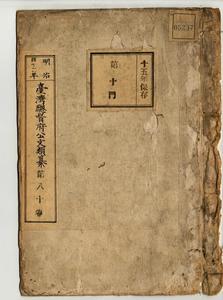 十五年保存
第十門
明治
臺灣總督府公文類纂第八十卷